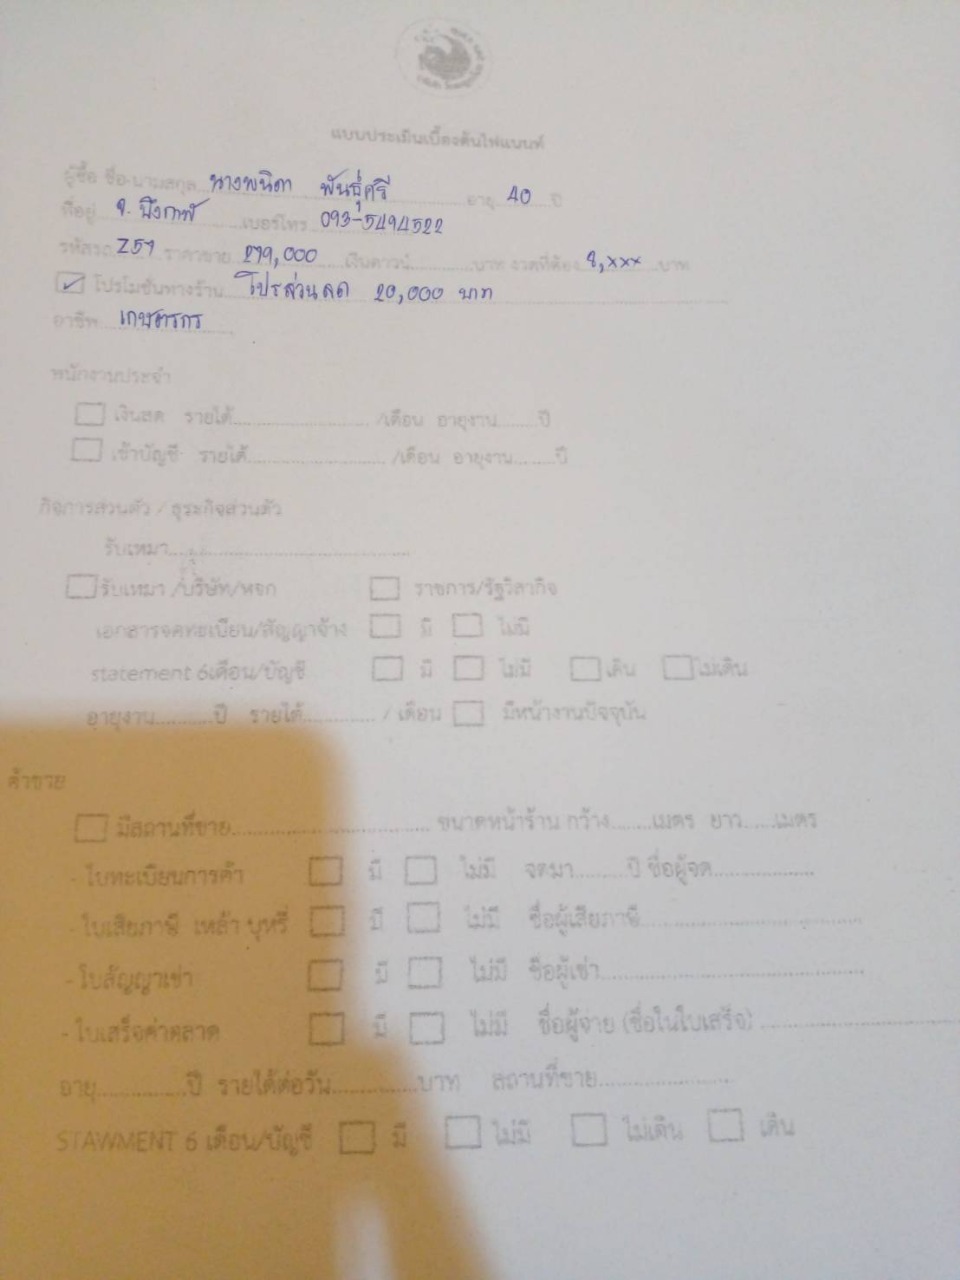 แบบประเมินเบื้องต้นไฟแนนท์
ผู้ซื้อ ชื่อ-นามสกุล นางพนิดา พันธุ์ศรี อายุ 40 ปี
ที่อยู่ จ. บึงกาฬ เบอร์โทร 093-5494522
รหัสรถ Z59 ราคาขาย 279,000 เงินดาวน์ บาท งวดที่ต้อง 8,xxx บาท
✓ โปรโมชั่นทางร้าน โปรส่วนลด 20,000 บาท
อาชีพ เกษตรกร
พนักงานประจำ
เงินสด รายได้ /เดือน อายุงาน ปี
เข้าบัญชี รายได้ /เดือน อายุงาน ปี
กิจการส่วนตัว / ธุระกิจส่วนตัว
รับเหมา
รับเหมา /บริษัท/หจก ราชการ/รัฐวิสากิจ
เอกสารจดทะเบียน/สัญญาจ้าง มี ไม่มี
statement 6เดือน/บัญชี มี ไม่มี เดิน ไม่เดิน
อายุงาน ปี รายได้ / เดือน มีหน้างานปัจจุบัน
ค้าขาย
มีสถานที่ขาย ขนาดหน้าร้าน กว้าง เมตร ยาว เมตร
- ใบทะเบียนการค้า มี ไม่มี จดมา ปี ชื่อผู้จด
- ใบเสียภาษี เหล้า บุหรี่ มี ไม่มี ชื่อผู้เสียภาษี
- ใบสัญญาเช่า มี ไม่มี ชื่อผู้เช่า
- ใบเสร็จค่าตลาด มี ไม่มี ชื่อผู้จ่าย (ชื่อในใบเสร็จ)
อายุ ปี รายได้ต่อวัน บาท สถานที่ขาย
STAWMENT 6 เดือน/บัญชี มี ไม่มี ไม่เดิน เดิน